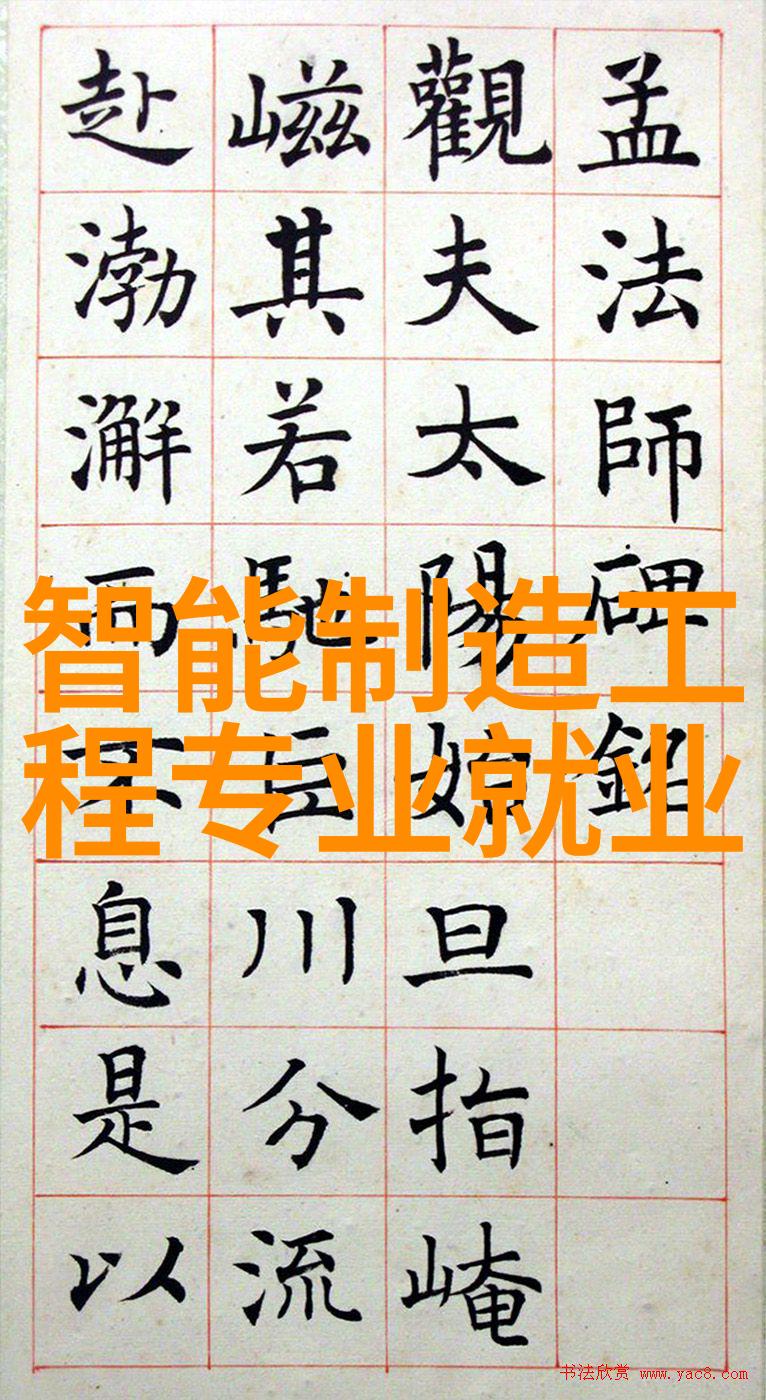 孟法師碑銘
觀夫太陽始旦指崦
嵫其若馳巨川分流
赴渤澥而不息是以
智能制造工
程专业就业
书法欣赏 www.yac8.com